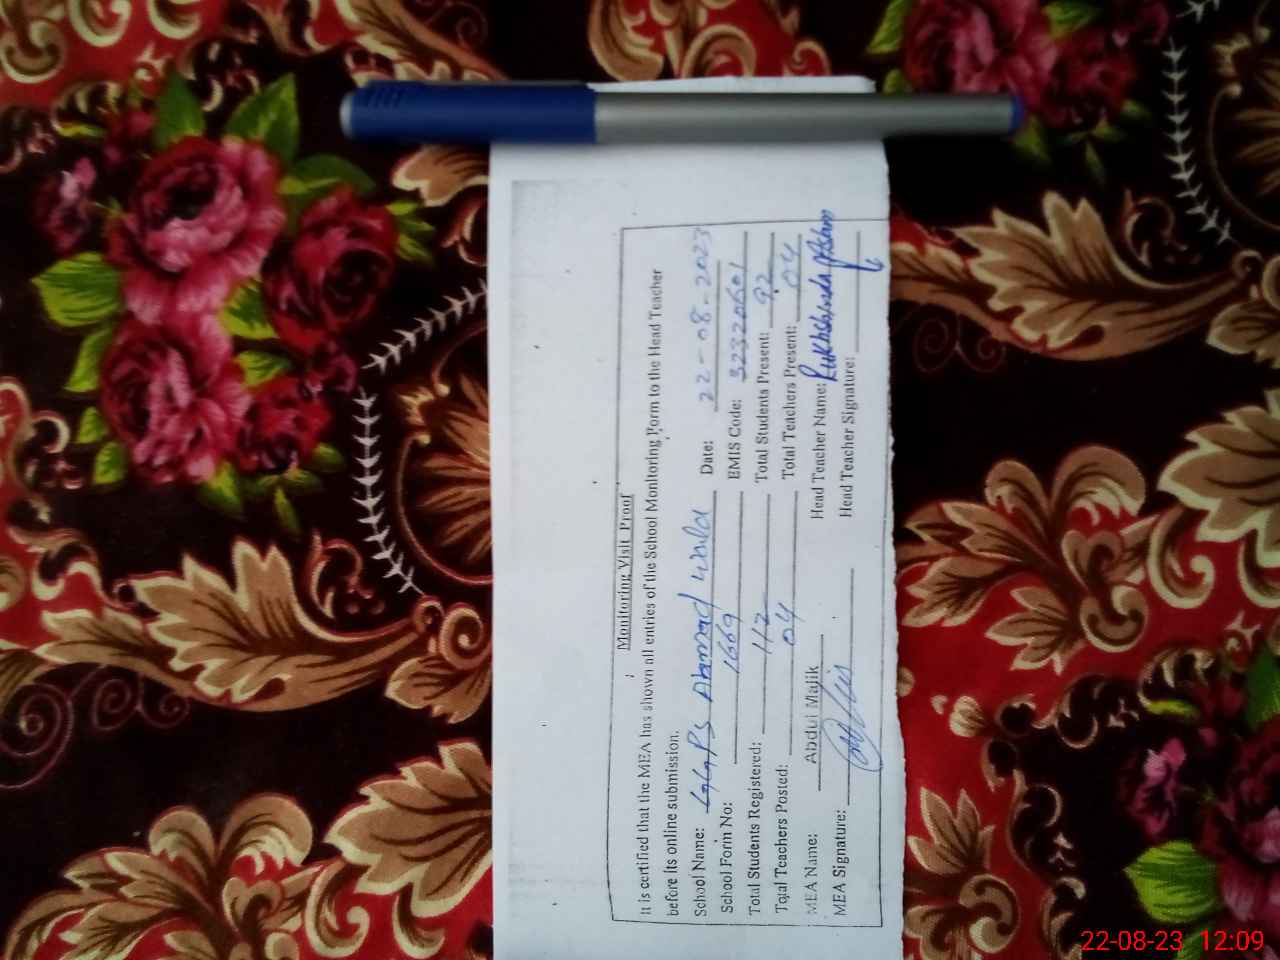 Monitoring Visit Proof
It is certified that the MEA has shown all entries of the School Monitoring Form to the Head Teacher
before its online submission.
School Name: GGPS Ahmad wala Date: 22-08-2023
School Form No: 1669 EMIS Code: 32320601
Total Students Registered: 112 Total Students Present: 92
Total Teachers Posted: 04 Total Teachers Present: 04
MEA Name: Abdul Malik Head Teacher Name: Rukhshanda
MEA Signature: Head Teacher Signature:
22-08-23 12:09